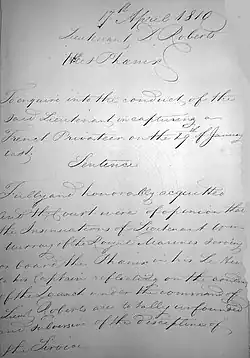 17th April 1810
Lieutenant S Roberts
HMS Thames
To enquire into the conduct of the
said Lieutenant in capturing a
French Privateer on the 19th of January
last
Sentence
Fully and honorably acquitted
and the Court were of opinion that
the Insinuations of Lieutenant
Murray of the Royal Marines serving
on board the Thames in his Letter
to his Captain reflecting on the
of the Launch under the command of
Lieut Roberts are totally unfounded
and subversive of the discipline of
the Service